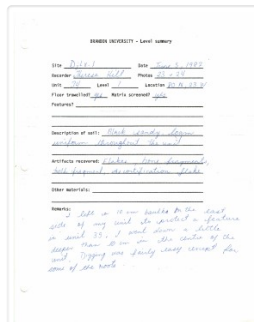 BRANDON UNIVERSITY - Level summary
Site DiLv-1 Date June 3, 1988
Recorder Teresa Hill Photos 23 + 24
Unit Level 1 Location
Floor trowelled? yes Matrix screened? yes
Features?
Description of soil: Black sandy loam
uniform throughout the unit
Artifacts recovered: flakes, bone fragments,
decortification flake
Other materials:
Remarks:
I left a 10 cm baulk on the east
side of my unit to protect a feature
in unit 33. I went down a little
deeper than 10 cm in the centre of the
unit. Digging was fairly easy except for
some of the roots.